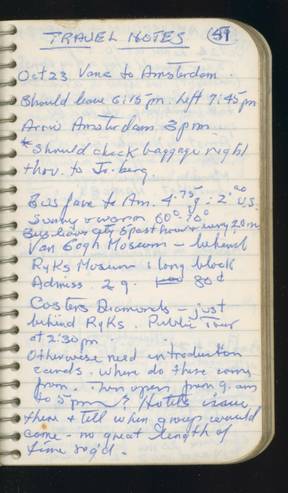 TRAVEL NOTES 41
Oct 23 Vanc to Amsterdam.
Should leave 6:15 pm. Left 7:45 pm
Arriv Amsterdam 3 pm
* Should check baggage right
thou. to Jo. berg
Bus fare to Am. 4.75 g = 2.00 U.S.
Sunny & warm 60° 70°
Bus leaves city 5 past hour & every 20 m
Van Gogh Museum - behind
Ryks Museum 1 long block
Admiss. 2 g. 80¢
Costers Diamonds - just
behind Ryks. Public Tour
at 2:30 pm
Otherwise need introduction
cards. Where do these come
from. open from 9. am
to 5 pm ? Hotels issue
them & tell when group would
come - no great length of
time req'd.